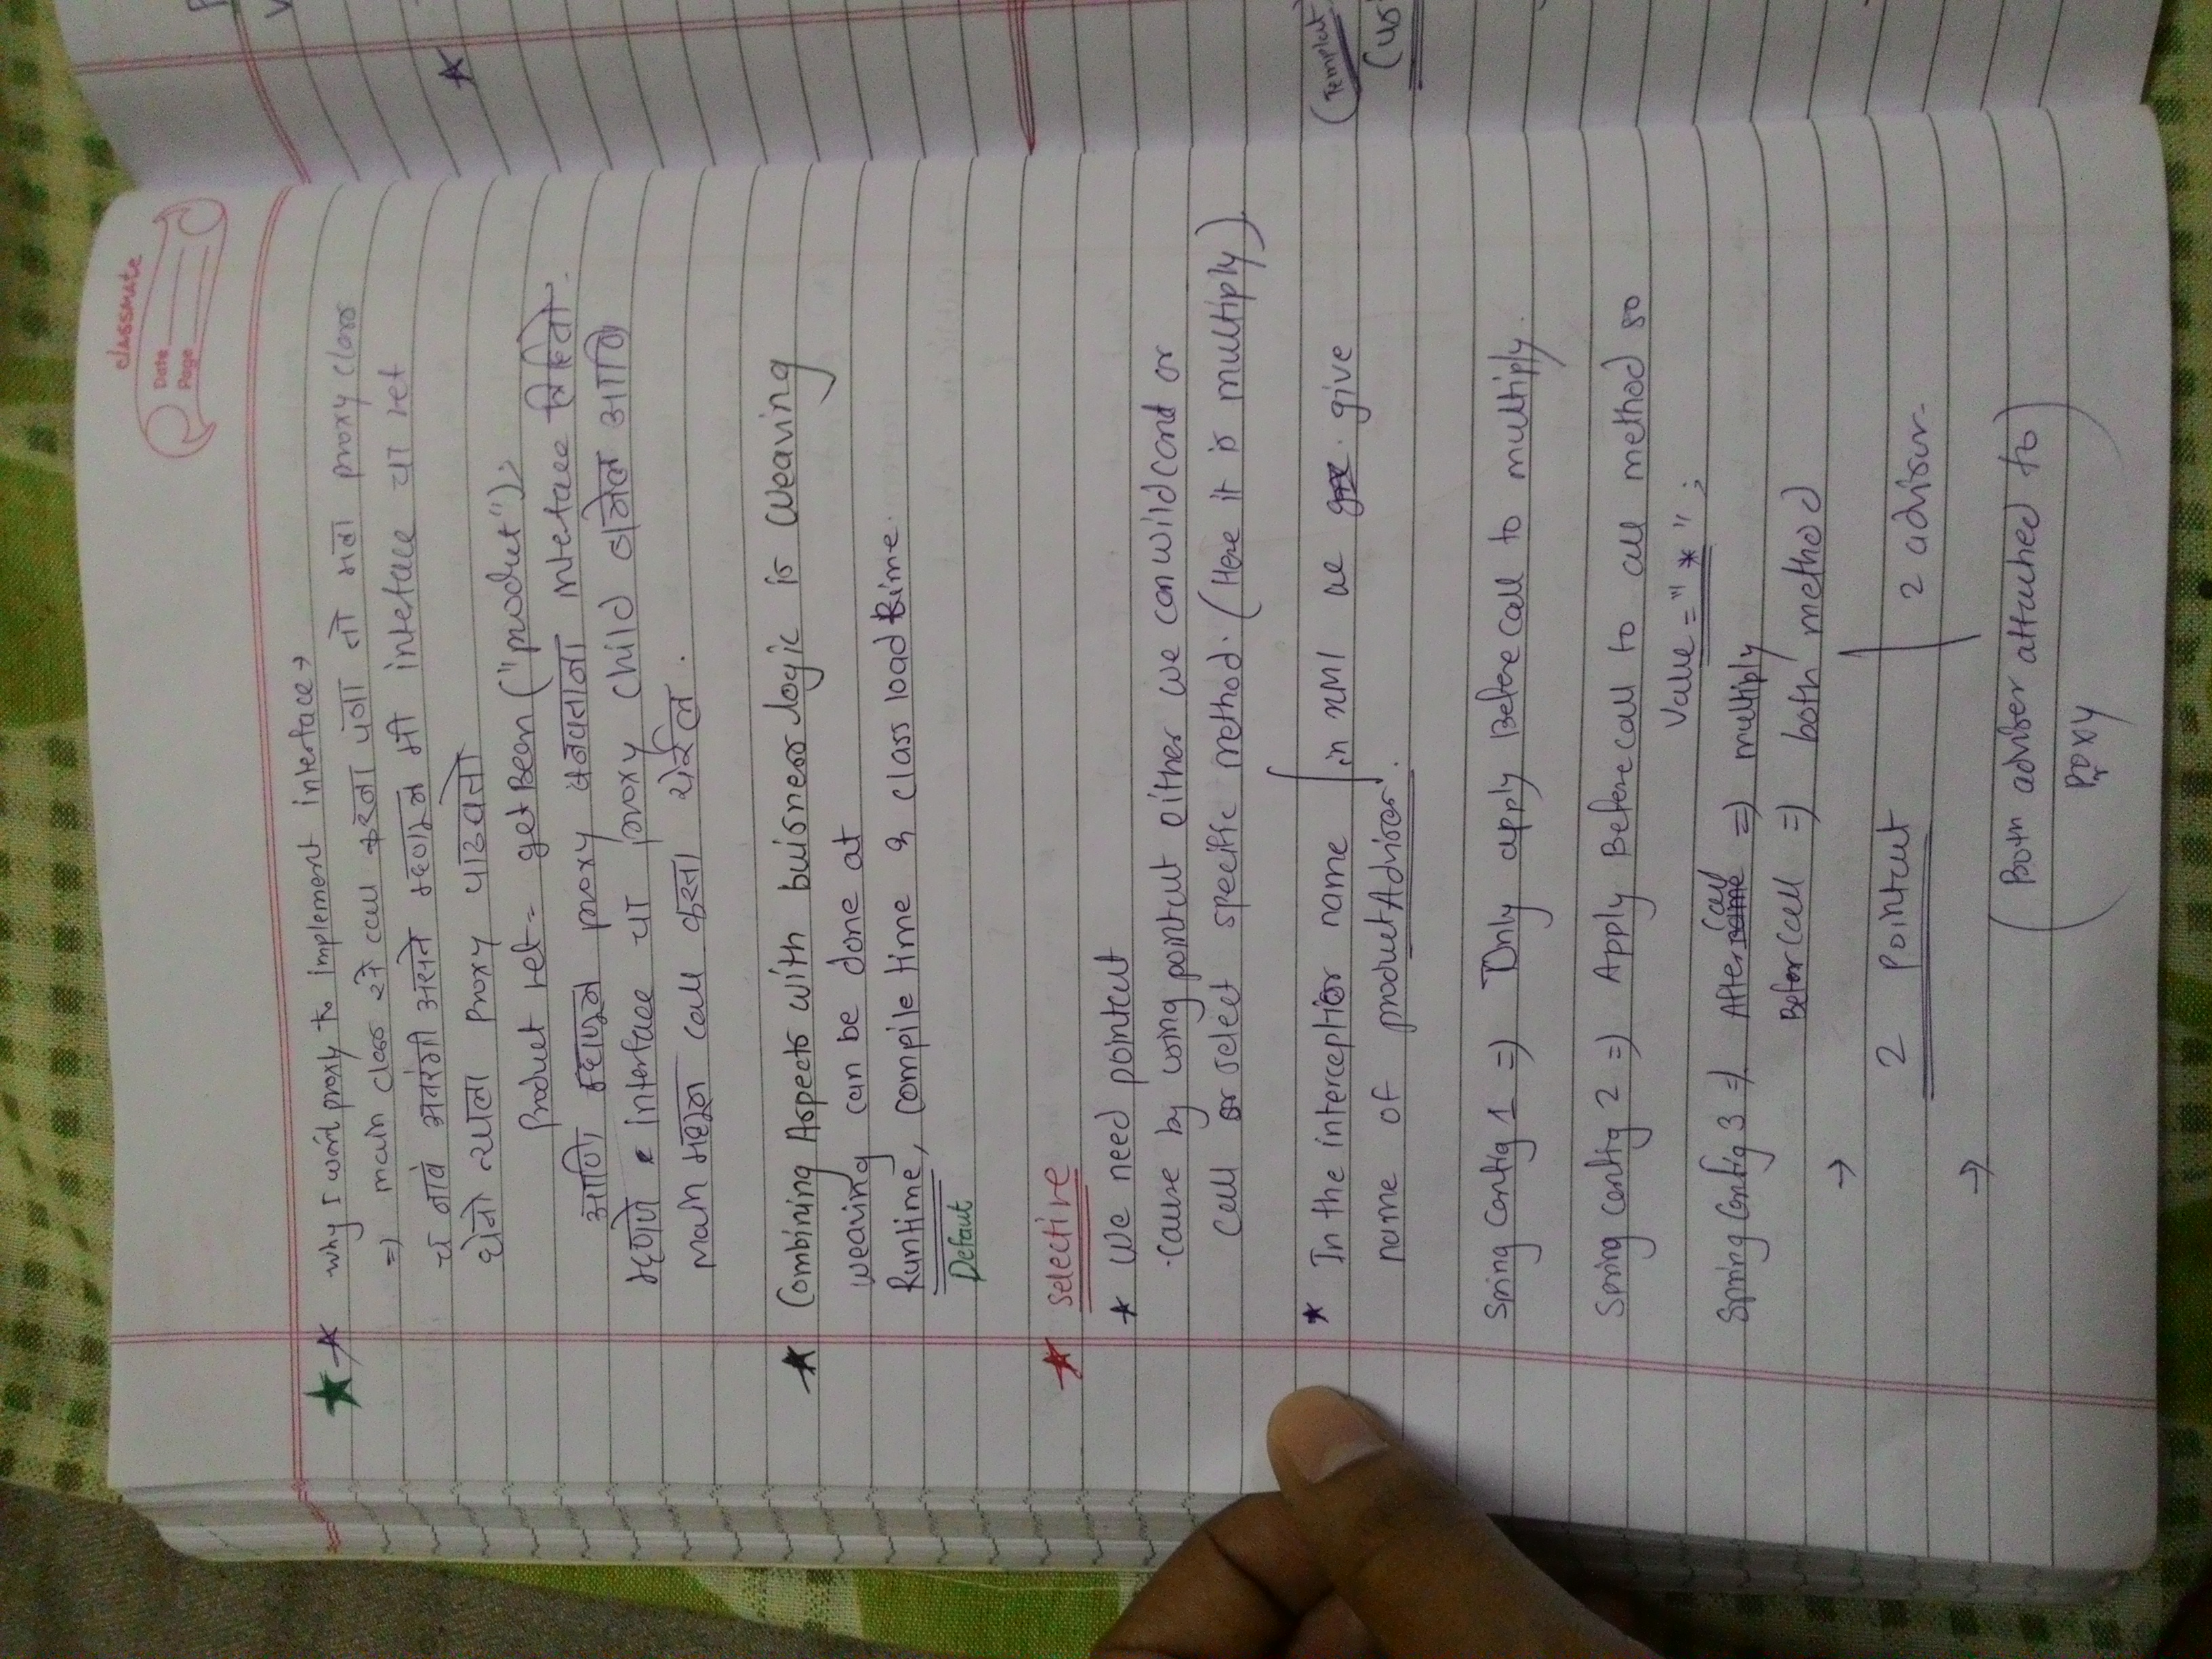 classmate
Date
Page
why I want proxy to implement interface →
=) main class से call करना पना तो मला proxy class
च नाव अतरंगी असते म्हणून मी inteface चा ref
घेतो त्याला proxy पाठवतो
Product ref = getBean ("product");
आणि म्हणून proxy बनवताना inteface लिहितो.
म्हणजे interface चा proxy child बनेल आणि
main मधून call करता येईल.
Combining Aspects with buisness logic is weaving
weaving can be done at
Runtime, compile time & class load time.
Defaut
selective
* We need pointcut
cause by using pointcut either we can wildcard or
call or select specific method. (Here it is multiply)
* In the interceptior name in xml we give
name of productAdvisor.
Spring Config 1 =) Only apply Before call to multiply.
Spring Config 2 =) Apply Before call to all method so
Value = "*" ;
Spring Config 3 =) After call =) multiply
Befor Call =) both method
→
2 pointcut 2 advisor
→
(Both adviser attached to
Proxy)
(Templat
(us